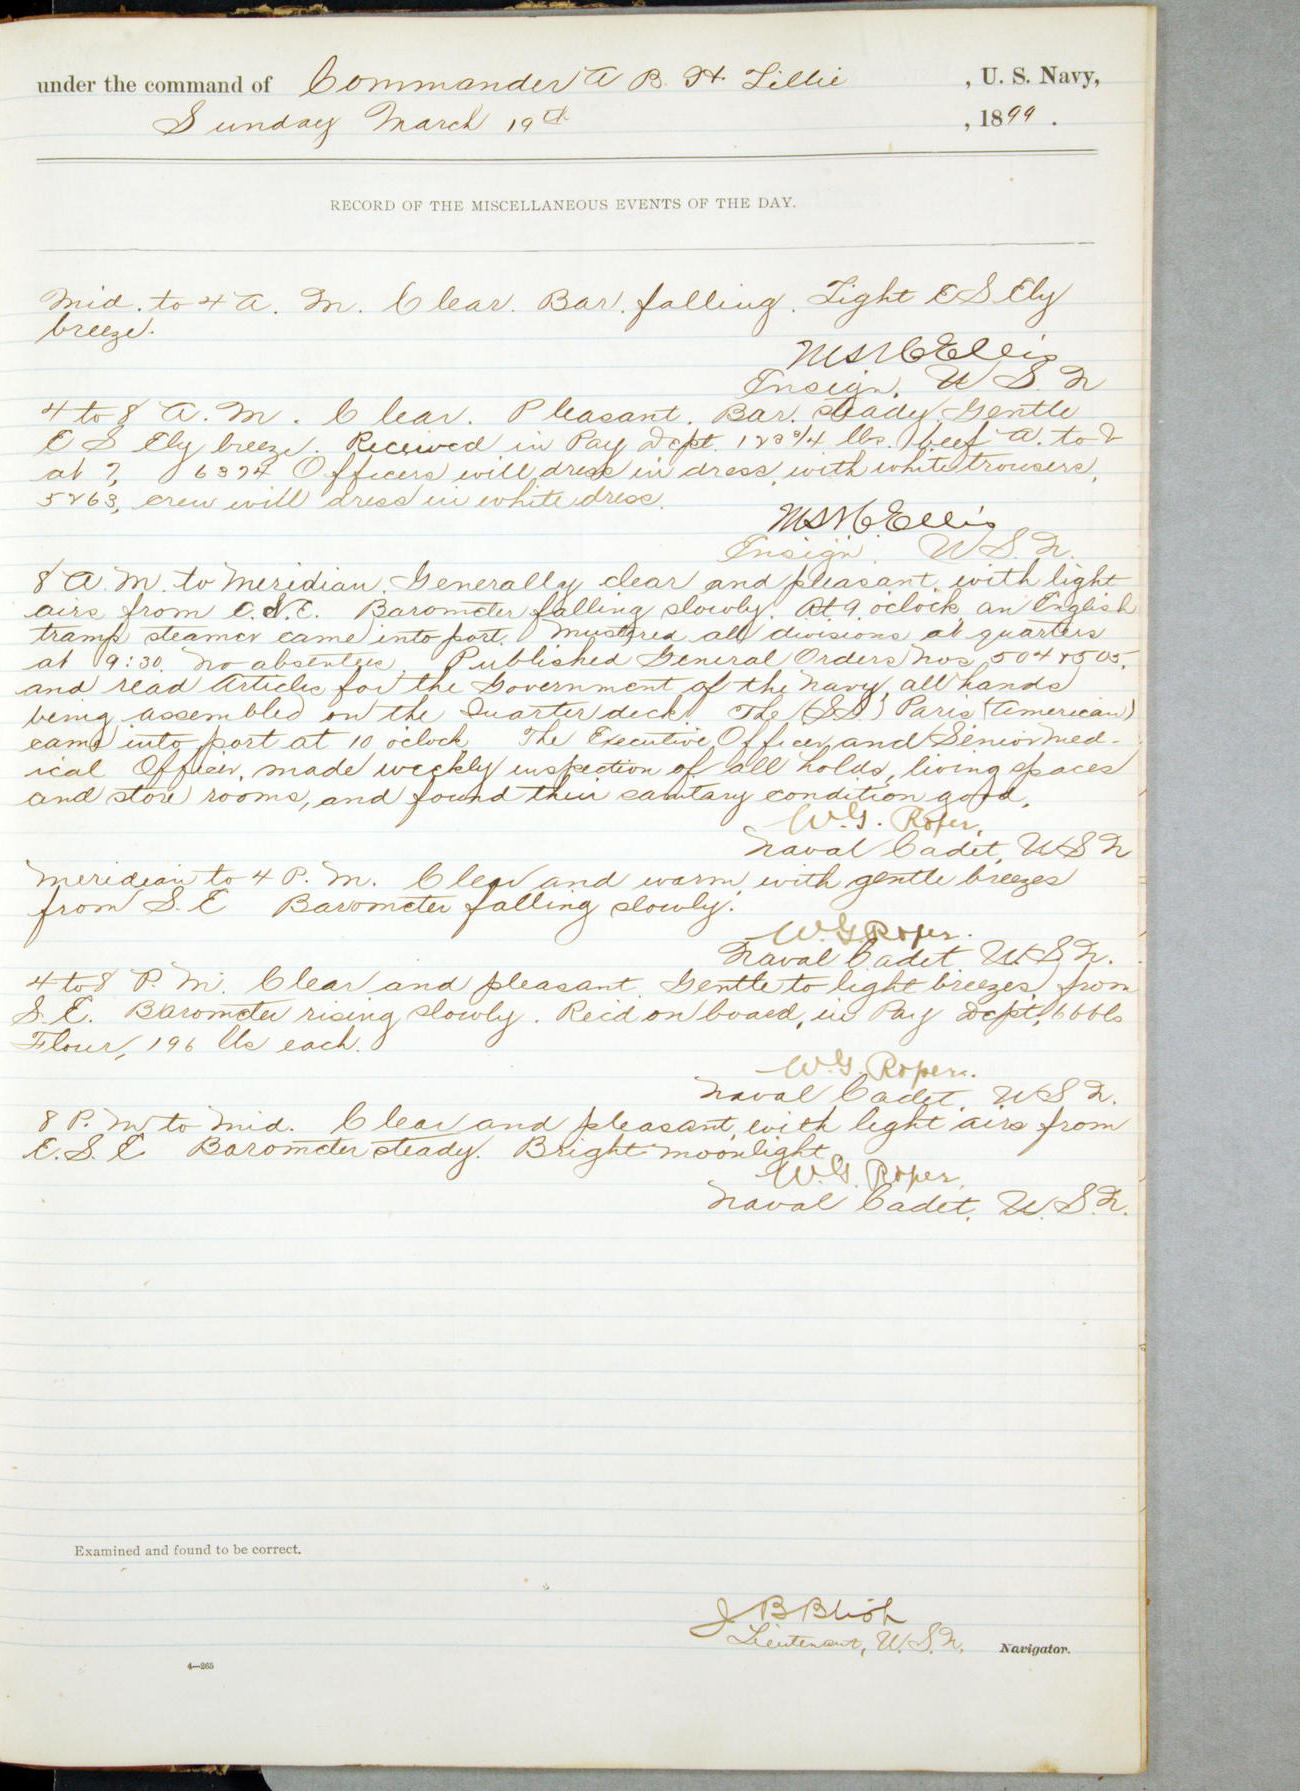 under the command of Commander A B. H. Lillie , U. S. Navy,
Sunday March 19th , 1899 .
RECORD OF THE MISCELLANEOUS EVENTS OF THE DAY.
Mid. to 4 A. M. Clear. Bar. falling. Light E S Ely
breeze.
Ensign, U S. N
4 to 8 A. M. Clear. Pleasant. Bar. steady Gentle
E S Ely breeze. Received in Pay Dept. 123 3/4 lbs. beef A. to
at 7, 6324 Officers will dress in dress, with white trousers,
5263, crew will dress in white dress.
Ensign U S. N.
8 A. M. to Meridian. Generally clear and pleasant with light
airs from E. S. E. Barometer falling slowly. At 9 o'clock an English
tramp steamer came into port. Mustered all divisions at quarters
at 9:30, no absentees. Published General Orders Nos 504 & 505,
and read Articles for the Government of the Navy, all hands
being assembled on the Quarter deck. The (SS) Paris (American)
came into port at 10 o'clock The Executive Officer and Senior Med-
ical Officer, made weekly inspection of all holds, living spaces
and store rooms, and found their sanitary condition good.
W. G. Roper,
Naval Cadet, U S N
Meridian to 4 P. M. Clear and warm, with gentle breezes
from S. E Barometer falling slowly.
W. G. Roper.
Naval Cadet U. S. N.
4 to 8 P. M. Clear and pleasant. Gentle to light breezes from
S. E. Barometer rising slowly. Rec'd on board, in Pay Dept, 6 bbls
Flour, 196 lbs each.
W. G. Roper.
Naval Cadet, U S N.
8 P. M to Mid. Clear and pleasant, with light airs from
E. S. E Barometer steady. Bright moonlight
W. G. Roper,
Naval Cadet, U. S. N.
Examined and found to be correct.
J B Blish
Lieutenant, U. S. N. Navigator.
4—265